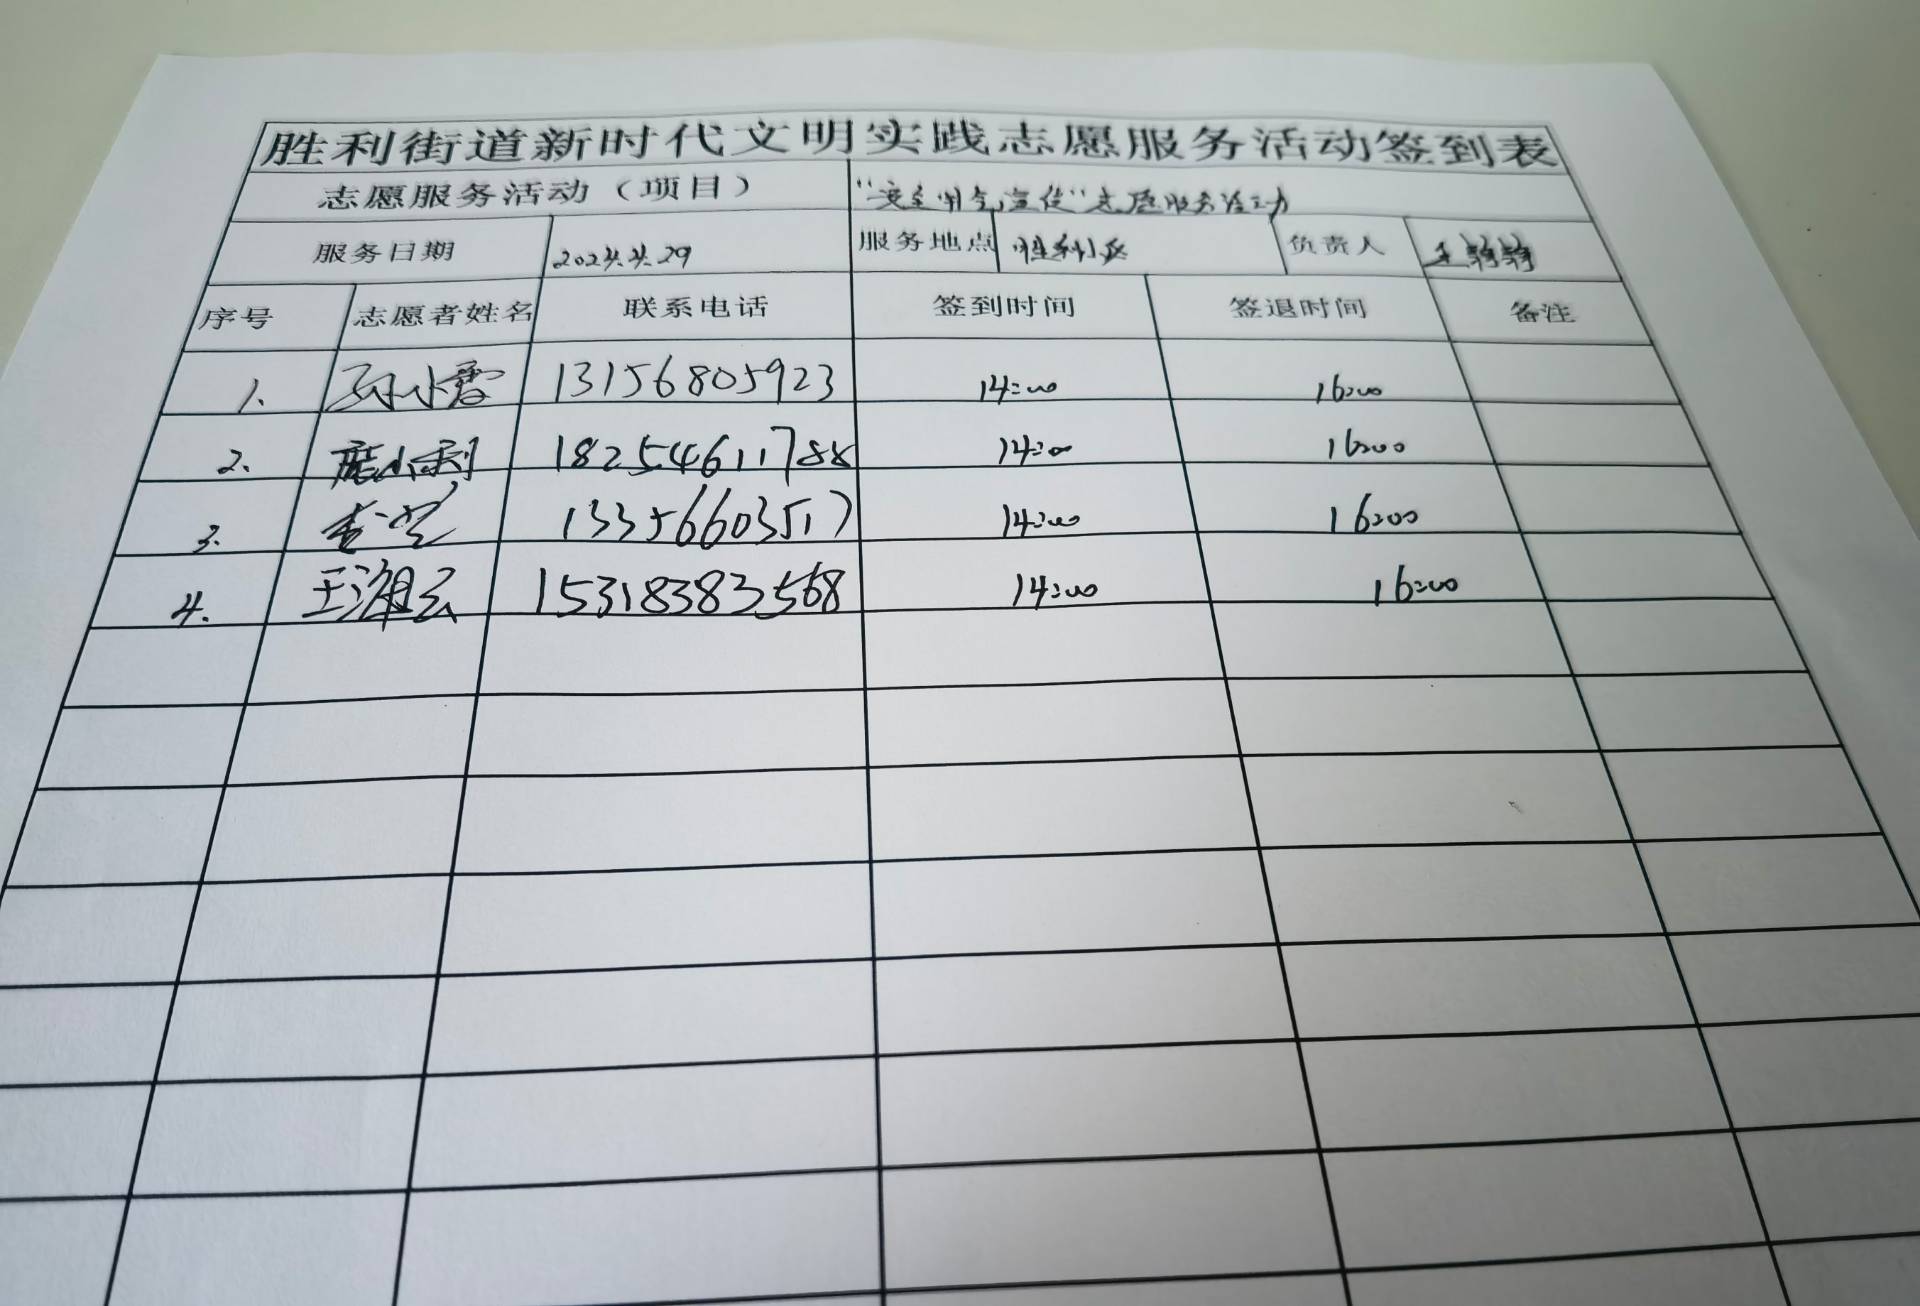 胜利街道新时代文明实践志愿服务活动签到表
志愿服务活动（项目） “安全用气宣传”志愿服务活动
服务日期 2024.4.29 服务地点 胜利小区 负责人 王
序号 志愿者姓名 联系电话 签到时间 签退时间 备注
1. 孙小霞 13156805923 14:00 16:00
2. 庞小利 18254611788 14:00 16:00
3. 13356603517 14:00 16:00
4. 王海云 15318383568 14:00 16:00